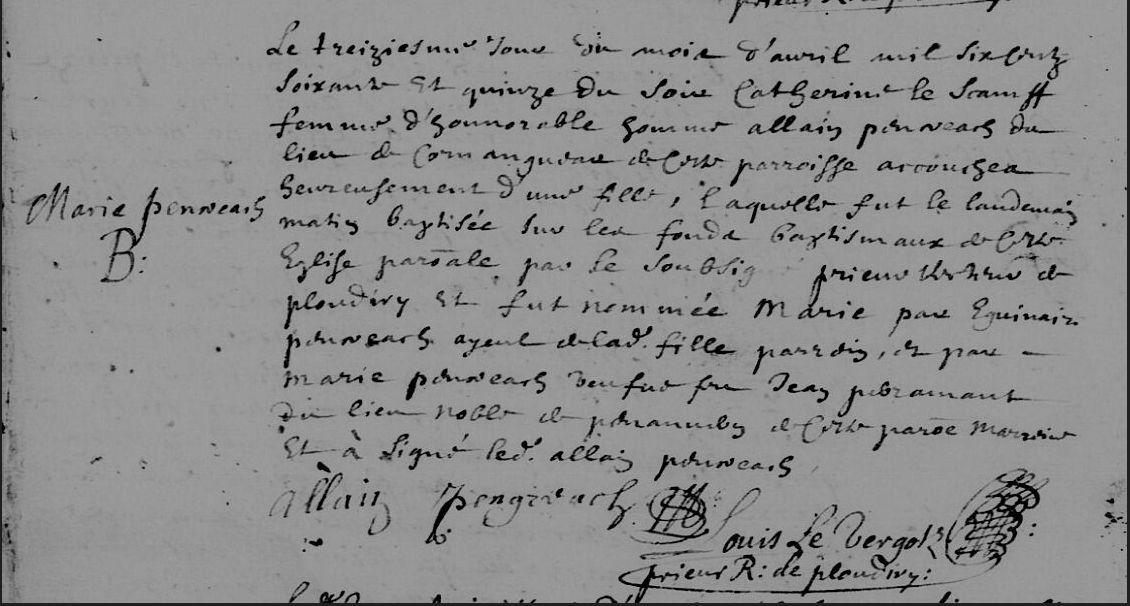 Le treiziesme Jour du mois d'avril mil six centz
soixante Et quinze du soir Catherine le Scanff
femme d'honnorable homme allain penneach du
lieu de de Cette parroisse accouchea
heureusement d'une fille, laquelle fut le landemain
Marie penneach
B:
matin baptisée sur les fonds baptismaux de Cette
Eglise paroāle par le soubsig prieur Recteur de
ploudiry Et fut nommée Marie par Eguinair
penneach ayeul de lad. fille parrein, et par
marie penneach veufve feu Jean
du lieu noble de de Cette paroē Marreine
Et à signé led. allain penneach
allain
Louis Le Vergoz
prieur R: de ploudiry: